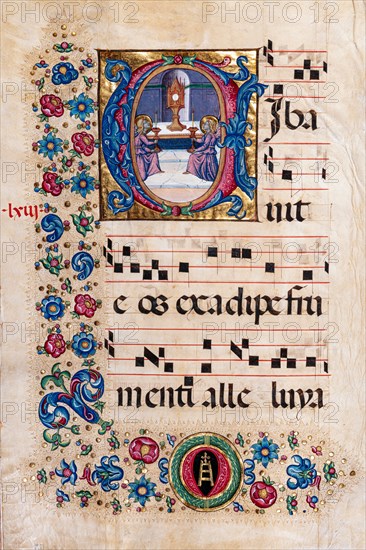 Ciba
-lxiii-
uit
e os ex adipe fru
menti alle luya